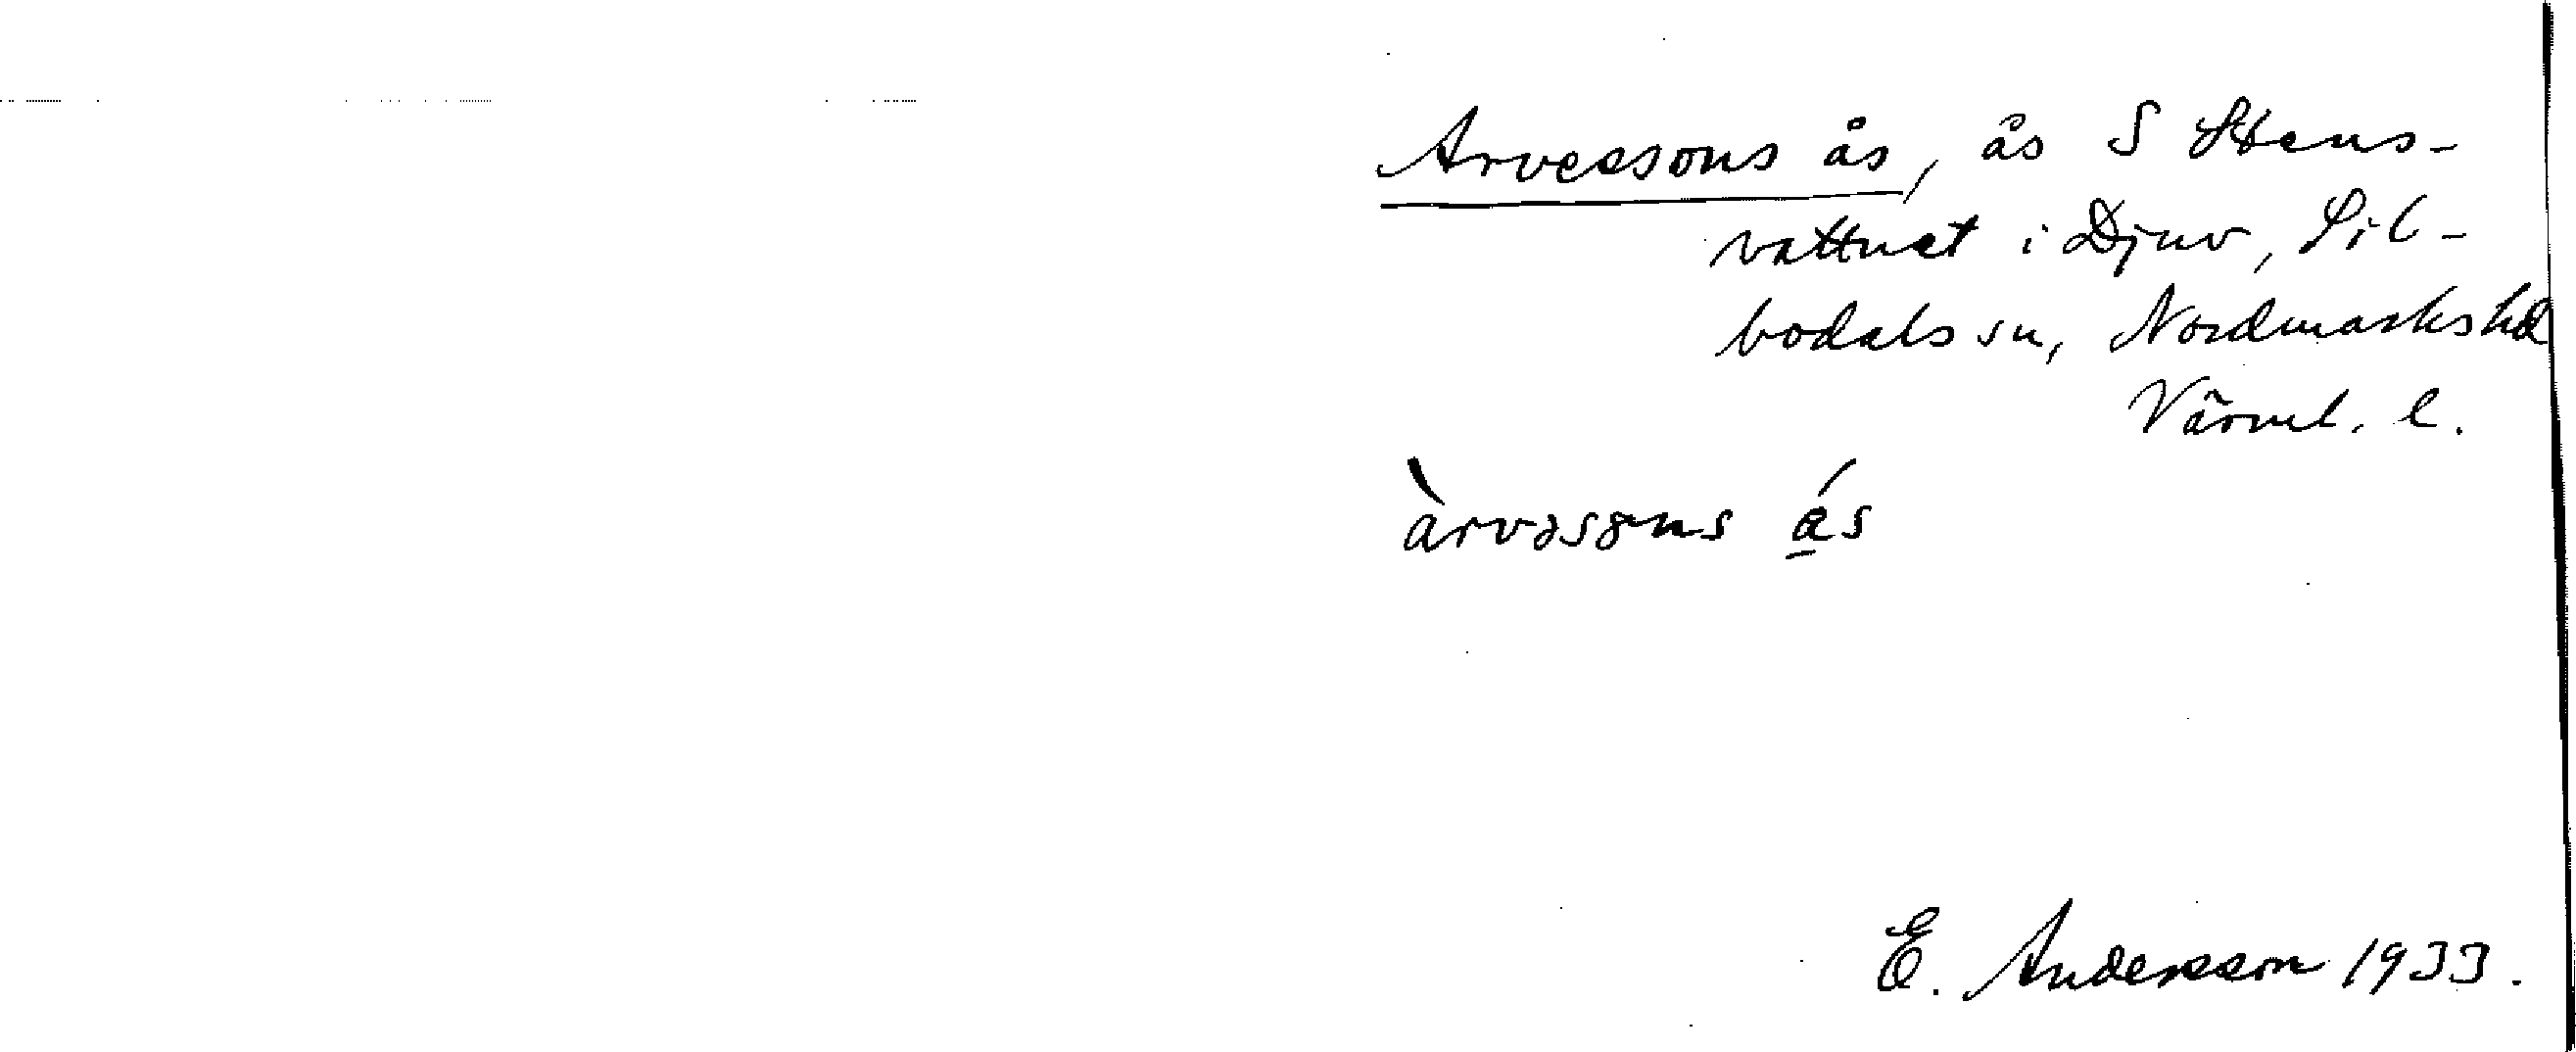 Arvessons ås, ås S Stens-
vattnet i Djuv, Sil-
bodals sn, Nordmarks hd
Värml. l.
àrvəsɞns ás
E. Andersson 1933.